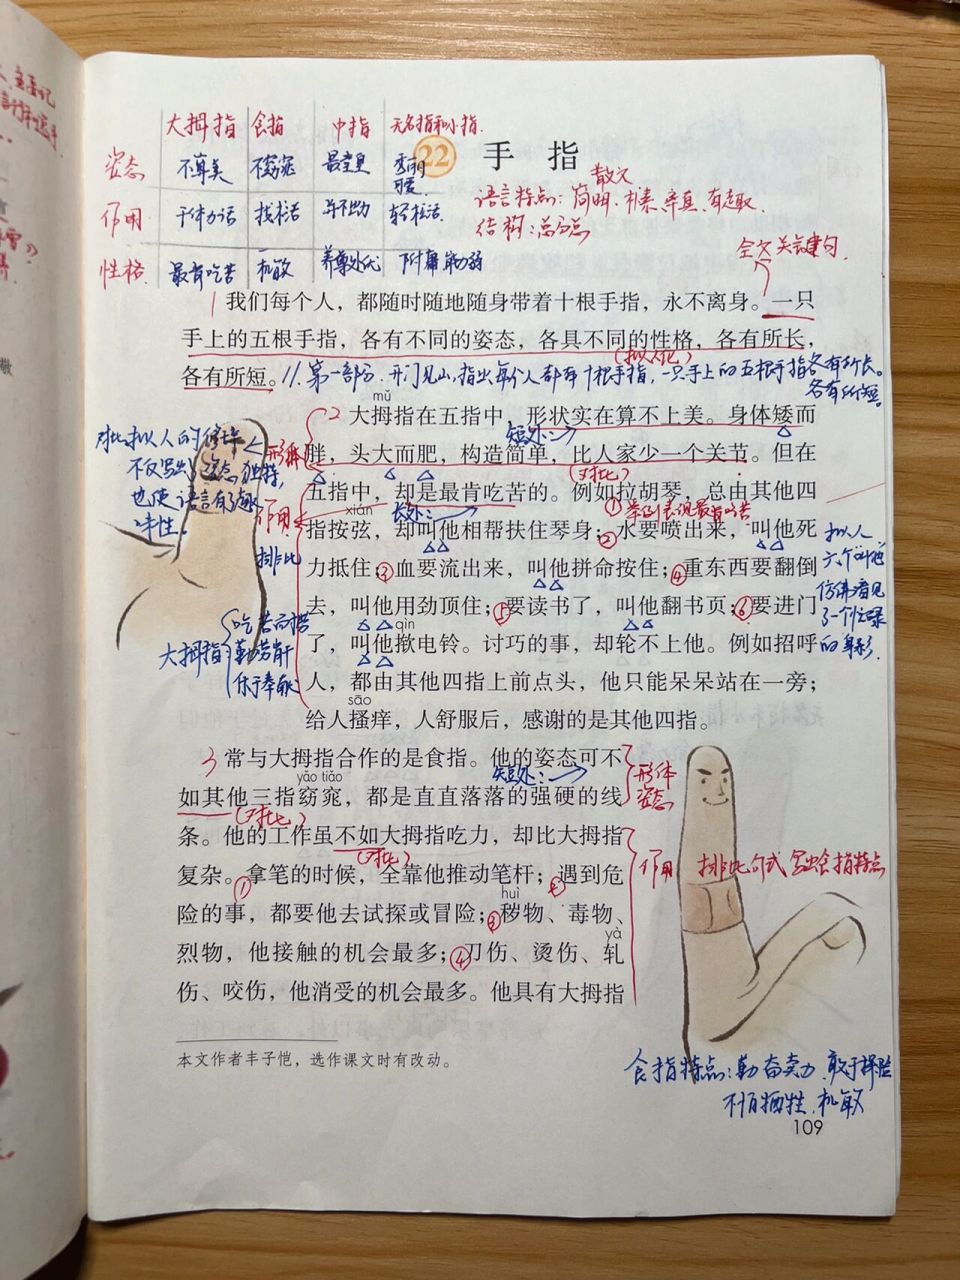 大拇指 食指 中指 无名指和小指.
姿态 不算美 不窈窕 最堂皇 秀丽 可爱
作用 干体力活 找杂活 并不出力 轻松活
性格. 最肯吃苦 机敏 养尊处优 附庸 弱
22 手指
散文
语言特点: 简明. 朴素. 亲真. 有趣.
结构: 总分总
全文关键句.
1 我们每个人，都随时随地随身带着十根手指，永不离身。一只
手上的五根手指，各有不同的姿态，各具不同的性格，各有所长，
(拟人化)
各有所短。// 第一部分. 开门见山,指出每个人都有十根手指,一只手上的五根手指各有所长。
各有所短。
mǔ
2 大拇指在五指中，形状实在算不上美。身体矮而
短处:
胖，头大而肥，构造简单，比人家少一个关节。但在
(对比)
五指中，却是最肯吃苦的。例如拉胡琴，总由其他四
xián 长处: ①举例表现最肯吃苦
指按弦，却叫他相帮扶住琴身；②水要喷出来，叫他死
力抵住；③血要流出来，叫他拼命按住；④重东西要翻倒
去，叫他用劲顶住；⑤要读书了，叫他翻书页；⑥要进门
qìn
了，叫他揿电铃。讨巧的事，却轮不上他。例如招呼
人，都由其他四指上前点头，他只能呆呆站在一旁；
sāo
给人搔痒，人舒服后，感谢的是其他四指。
对比,拟人的修辞
不仅写出 姿态独特,
也使语言有趣
味性.
形体
作用
排比
大拇指
吃苦耐劳
勤劳肯干
乐于奉献
拟人
六个"叫他"
仿佛看见
了一个忙碌
的身影.
3 常与大拇指合作的是食指。他的姿态可不
yǎo tiǎo 短处:
如其他三指窈窕，都是直直落落的强硬的线
(对比)
条。他的工作虽不如大拇指吃力，却比大拇指
(对比)
复杂。①拿笔的时候，全靠他推动笔杆；②遇到危
huì
险的事，都要他去试探或冒险；③秽物、毒物、
yà
烈物，他接触的机会最多；④刀伤、烫伤、轧
伤、咬伤，他消受的机会最多。他具有大拇指
形体
姿态
作用 排比句式 写出食指特点
本文作者丰子恺，选作课文时有改动。
食指特点: 勤奋卖力. 敢于探险
不怕牺牲. 机敏
109